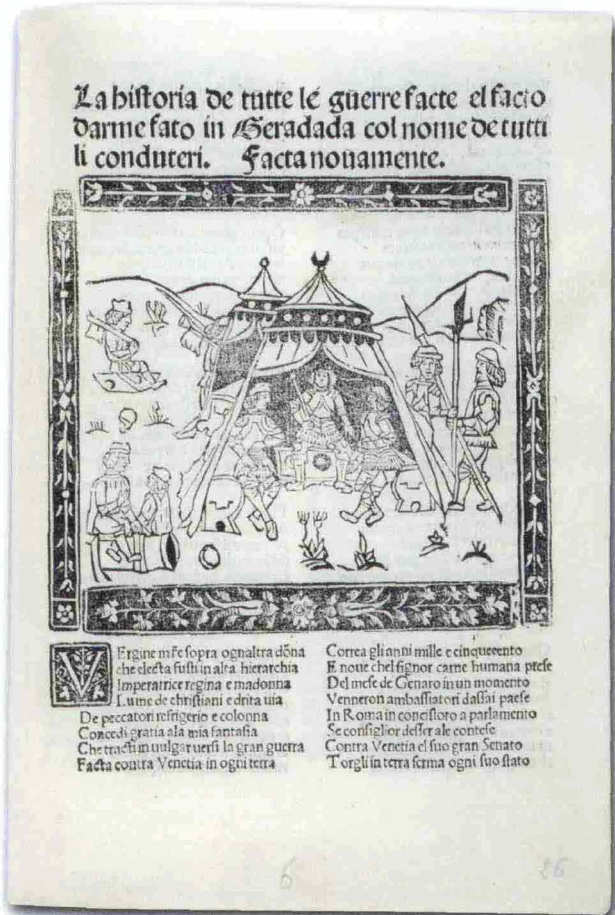 La historia de tutte le guerre facte el facto
darme fato in Geradada col nome de tutti
li conduteri. Facta nouamente.
VErgine mr̄e sopra ognaltra dōna
che electa fusti in alta hierarchia
Imperatrice regina e madonna
Lume de christiani e drita uia
De peccatori refrigerio e colonna
Concedi gratia ala mia fantasia
Che tracti in uulgar uersi la gran guerra
Facta contra Venetia in ogni terra
Correa gli anni mille e cinquecento
E noue chel signor carne humana prese
Del mese de Genaro in un momento
Venneron ambassiatori dassai paese
In Roma in concistoro a parlamento
Se consiglior desser ale contese
Contra Venetia el suo gran Senato
Torgli in terra ferma ogni suo stato
6
26